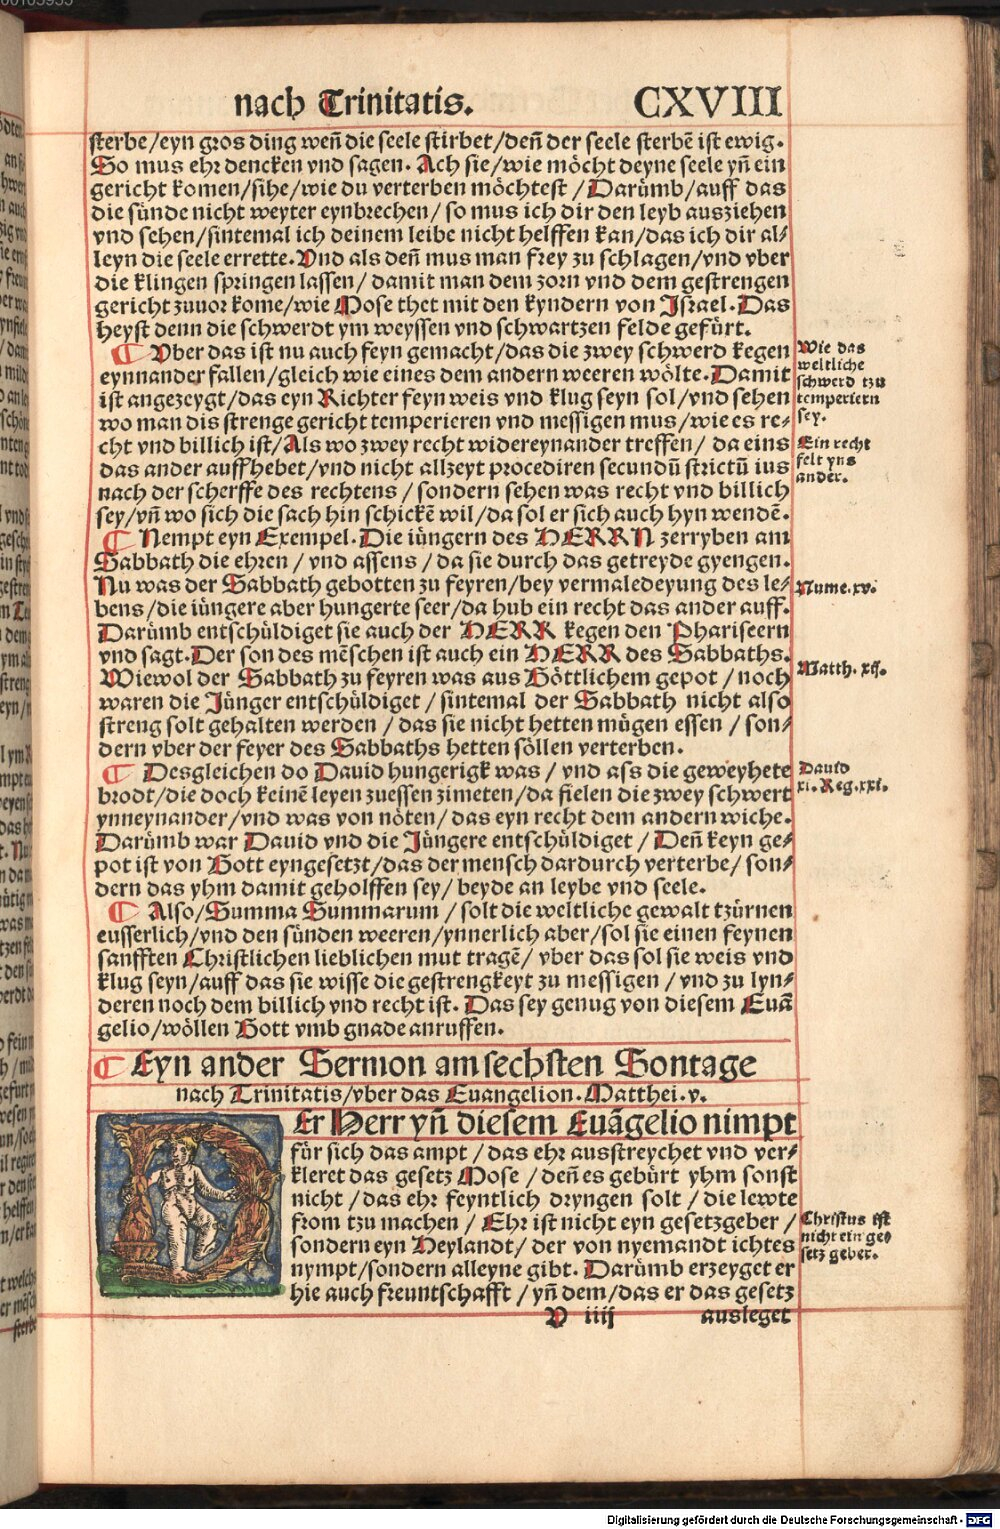 nach Trinitatis. CXVIII
sterbe/eyn gros ding weñ die seele stirbet/deñ der seele sterbẽ ist ewig.
So mus ehr dencken vnd sagen. Ach sie/wie möcht deyne seele yñ ein
gericht komen/sihe/wie du verterben möchtest / Darůmb/auff das
die sünde nicht weyter eynbrechen/ so mus ich dir den leyb ausziehen
vnd sehen/sintemal ich deinem leibe nicht helffen kan/das ich dir al-
leyn die seele errette. Vnd als deñ mus man frey zu schlagen/vnd vber
die klingen springen lassen/ damit man dem zorn vnd dem gestrengen
gericht zuuor kome/wie Mose thet mit den kyndern von Israel. Das
heyst denn die schwerdt ym weyssen vnd schwartzen felde gefürt.
¶ Vber das ist nu auch feyn gemacht/das die zwey schwerd kegen
eynnander fallen/gleich wie eines dem andern weeren wölte. Damit
ist angezeygt/das eyn Richter feyn weis vnd klug seyn sol/vnd sehen
wo man dis strenge gericht temperieren vnd messigen mus/wie es re-
cht vnd billich ist/Als wo zwey recht widereynander treffen/ da eins
das ander auffhebet/vnd nicht allzeyt procediren secundũ strictũ ius
nach der scherffe des rechtens / sondern sehen was recht vnd billich
sey/vñ wo sich die sach hin schickẽ wil/da sol er sich auch hyn wendẽ.
¶ Nempt eyn Exempel. Die iüngern des HERRN zerryben am
Sabbath die ehren / vnd assens / da sie durch das getreyde gyengen.
Nu was der Sabbath gebotten zu feyren/bey vermaledeyung des le-
bens/die iüngere aber hungerte seer/da hub ein recht das ander auff.
Darůmb entschüldiget sie auch der HERR kegen den Phariseern
vnd sagt. Der son des mẽschen ist auch ein HERR des Sabbaths.
Wiewol der Sabbath zu feyren was aus Göttlichem gepot / noch
waren die Jünger entschüldiget / sintemal der Sabbath nicht also
streng solt gehalten werden / das sie nicht hetten mügen essen / son-
dern vber der feyer des Sabbaths hetten söllen verterben.
¶ Desgleichen do Dauid hungerigk was / vnd ass die geweyhete
brodt/die doch keinẽ leyen zuessen zimeten/da fielen die zwey schwert
ynneynander/vnd was von nöten/das eyn recht dem andern wiche.
Darůmb war Dauid vnd die Jüngere entschüldiget / Deñ keyn ge-
pot ist von Gott eyngesetzt/das der mensch dardurch verterbe/ son-
dern das yhm damit geholffen sey/ beyde an leybe vnd seele.
¶ Also/Summa Summarum / solt die weltliche gewalt tzürnen
eusserlich/vnd den sünden weeren/ynnerlich aber/sol sie einen feynen
sanfften Christlichen lieblichen mut tragẽ/ vber das sol sie weis vnd
klug seyn/auff das sie wisse die gestrengkeyt zu messigen / vnd zu lyn-
deren noch dem billich vnd recht ist. Das sey genug von diesem Euã
gelio/wöllen Gott vmb gnade anruffen.
Wie das
weltliche
schwerd tzu
temperiern
sey.
Ein recht
felt yns
ander.
Nume.xv.
Matth. xij.
Dauid
Reg.xxi.
¶ Eyn ander Sermon am sechsten Sontage
nach Trinitatis/vber das Euangelion. Matthei.v.
DEr Herr yñ diesem Euãgelio nimpt
für sich das ampt / das ehr ausstreychet vnd ver-
kleret das gesetz Mose / deñ es gebürt yhm sonst
nicht / das ehr feyntlich dryngen solt / die lewte
from tzu machen / Ehr ist nicht eyn gesetzgeber /
sondern eyn Heylandt/ der von nyemandt ichtes
nympt/sondern alleyne gibt. Darůmb erzeyget er
hie auch freuntschafft / yñ dem/das er das gesetz
Christus ist
nicht ein ge-
setz geber.
V iiij ausleget
Digitalisierung gefördert durch die Deutsche Forschungsgemeinschaft - DFG